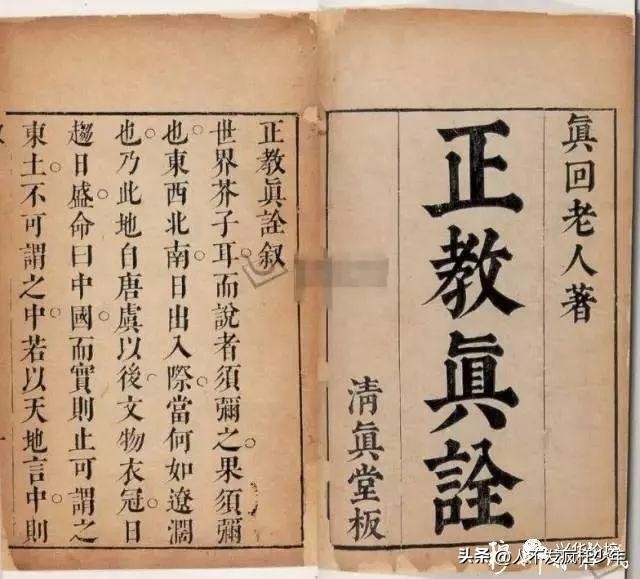 眞回老人著
正教眞詮
清眞堂板
正教眞詮叙
世界芥子耳而說者須彌之果須彌
也東西北南日出入際當何如遼濶
也乃此地自唐虞以後文物衣冠日
趨日盛命曰中國而實則止可謂之
東土不可謂之中若以天地言中則
兴华论坛
头条 @人不